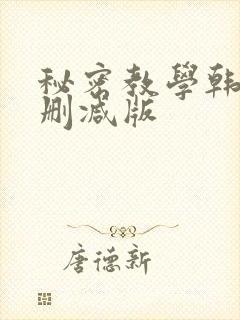 秘密教學韩
删减版
唐德新